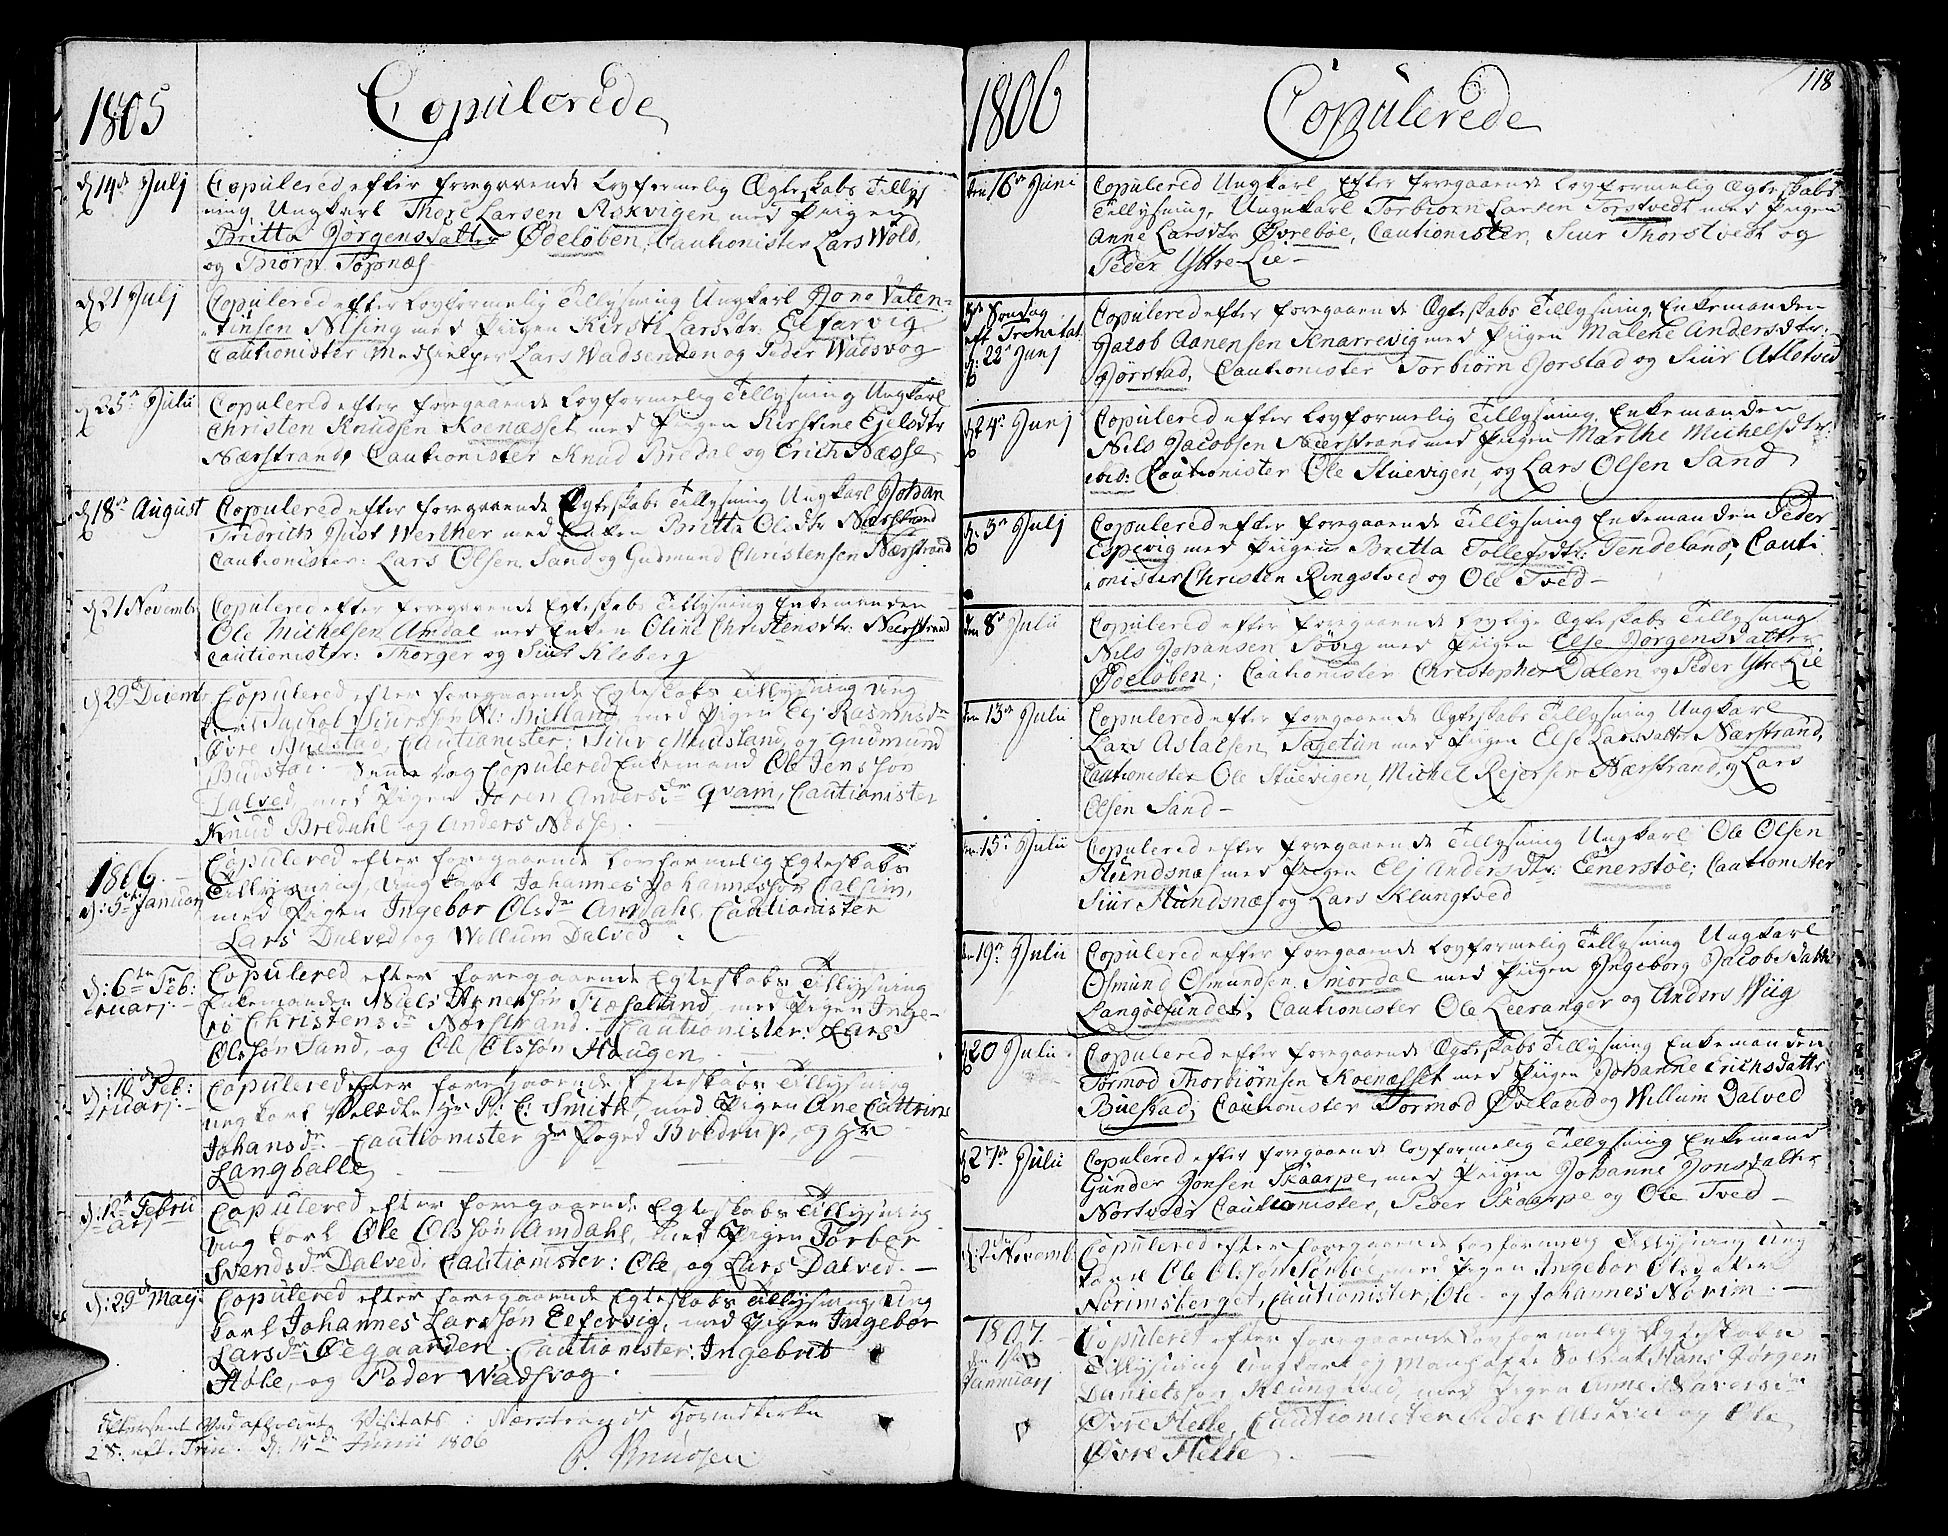 1805 Copulerede
d 14de Julj Copulered efter foregaaende lovformelig Ægteskabs Tillys
ning, Ungkarl Thore Larsen Askvigen med Piigen
Britta Jørgensdatter Ødeløben, Cautionister Lars Wold,
og Biørn Topnæs
d 21 Julj Copulered efter Lovformelig Tillysning Ungkarl Jono Valen-
tinsen Nising med Piigen Kirsti Larsdtr: Elfarvig
Cautionister Medhielper Lars Wadsenden og Peder Wadsvog
d 25de Julii Copulered efter foregaaende Lovformelig Tillysning Ungkarl
Christen Knudsen Koenæsset med Piigen Kirstine Ejelsdtr
Nærstrand, Cautionister Knud Bredal og Erich Næsse
d 18de August Copulered efter foregaaende Ægteskabs Tillysning Ungkarl Johan
Fridrich Just Werther med Enken Britte Olsdtr Nærstrand
Cautionister: Lars Olsen Sand og Gudmund Christensen Nærstrand
d 21 Novembr Copulered efter foregaaende Egteskabs Tillysning Enkemanden
Ole Michelsen Amdal med Enken Oline Christensdtr: Nærstrand
Cautionister: Thorger og Siur Kloberg
d 29de Decemb Copulered efter foregaaende Egteskabs Tillysning Ung
karl med Pigen Elj Rasmusdr
Øvre Buestad, Cautionister: Siur Mudsland og Gudmund
Buestad. Samme Dag Copulered Enkemand Ole Jensson
Dalved, med Pigen Joren Andersdr Qvam, Cautionister
Knud Bredahl og Anders Næsse.
1806. Copulered efter foregaaende Lovformelig Egteskabs
d: 5te Januarj Tillysning, Ungkarl Johannes Johannesson
med Pigen Ingebor Olsdr Amdahl, Cautionister
Lars Dalved og Willum Dalved.
d: 6te Feb: Copulered efter foregaaende Egteskabs Tillysning
ruarj. Enkemanden Niels med Pigen Inge-
ri Christensdr Nærstrand. Cautionister: Lars
Olssøn Sand, og Ole Olssøn Haugen.
d: 10de Feb: Copulered efter foregaaende Egteskabs Tillysning
ruarj. ungkarl Velædle Hr P. C. Smith, med Pigen Ane Cattrine
Johansdr. Cautionister Hr Foged Bredrup, og Hr
Langballe.
d: 12te Febru Copulered efter foregaaende Egteskabs Tillysning
arj ung karl Ole Olssøn Amdahl, med Pigen Torbor
Svendsdr Dalved. Cautionister: Ole, og Lars Dalved.
d: 29de Maj: Copulered efter foregaaende Egteskabs Tillysning, ung
karl Johannes Larssøn Eefervig, med Pigen Ingebor
Larsdr Øegaarden. Cautionister: Ingebrit
Hole, og Peder Wadsvog.
Efterseet ved afholdt Visitats i Nærstrands Hovedkirke
d: 15de Junii 1806
P. Knudsen
118
1806 Copulerede
den 16de Juni Copulered Ungkarl efter foregaaende Lovformelig Ægteskabs
Tillysning, Ungkarl Torbiørn Larsen Torstvedt med Piigen
Anne Larsdtr Øvrebøe, Cautionister, Siur Thorstvedt og
Peder Yttre Lie
3de Søndag Copulered efter foregaaende Ægteskabs Tillysning, Enkemanden
eft Trinitat. Jacob Aanensen Knarrevig med Piigen Malene Andersdtr:
d: 22de Junj Jorstad, Cautionister Torbiørn Jorstad og Siur Atletved
d 24de Junj Copulered efter Lovformelig Tillysning, Enkemanden
Nils Jacobsen Nærstrand med Piigen Marthe Michelsdtr:
ibid: Cautionister Ole Stuevigen, og Lars Olsen Sand
d: 3de Julj Copulered efter foregaaende Tillysning Enkemanden Peder
Espevig med Piigen Britta Tollefsdtr: Tendeland, Cauti
onister Christen Ringstved og Ole Tved
den 8de Julii Copulered efter foregaaende Lovlige Ægteskabs Tillysning
Nils Johansen Søvig med Piigen Else Jørgensdatter
Ødeløben; Cautionister Christopher Dalen og Peder Ytre Lie
den 13de Julii Copulered efter foregaaende Ægteskabs Tillysning Ungkarl
Lars Aslaksen Tagetun med Piigen Else Larsdatter Nærstrand,
Cautionister Ole Stuevigen, Michel Rejersen Nærstrand, og Lars
Olsen Sand
den 15de Julii Copulered efter foregaaende Tillysning Ungkarl Ole Olsen
Hundsnæs med Pigen Elj Andersdtr: Eenerstøe; Cautionister
Siur Hundsnæs og Lars Klungtved
den 19de Julii Copulered efter foregaaende Lovformelig Tillysning Ungkarl
Osmund Osmundsen Smordal med Piigen Ingeborg Jacobsdatter
Langøesundet; Cautionister Ole Leeranger og Anders Wiig
d 20 Julii Copulered efter foregaaende Ægteskabs Tillysning Enkemanden
Tormod Thorbiørnsen Koenæsset med Piigen Johanne Erichsdattr
Buestad; Cautionister Tormod Øveland og Willum Dalved
d 27de Julii Copulered efter foregaaende lovformelig Tillysning Enkemand
Gunder Jonsen Skaarpe, med Piigen Johanne Jonsdatter
Nortvedt Cautionister, Peder Skaarpe og Ole Tved
d: 2de Novemb Copulered efter foregaaende Lovformelig Tillysning Ung
karl Ole Olssøn Sørbøe, med Pigen Ingebor Olsdatter
Norimsberget, Cautionister, Ole og Johannes Norim.
1807. Copuleret efter foregaaende Lovformelig Egteskabs
Januarj Tillysning Ungkarl og Soldat Hans Jørgen
Danielssøn med Pigen Anne
Øvre Helle, Cautionister Peder og Ole
Øvre Helle.